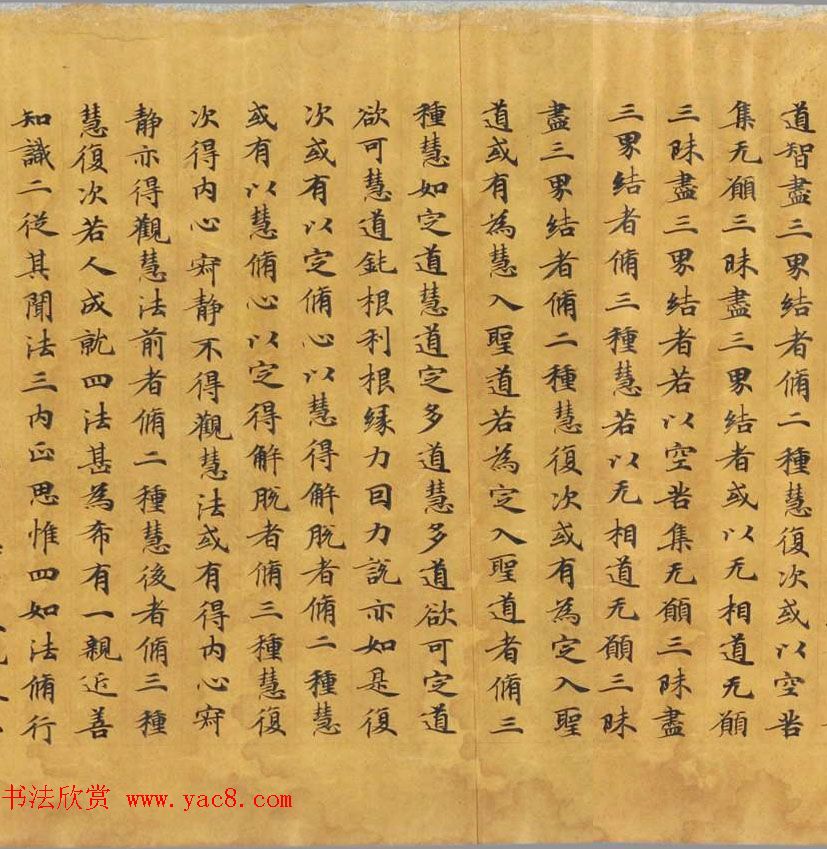 道智盡三界結者脩二種慧復次或以空苦
集无願三昧盡三界結者或以无相道无願
三昧盡三界結者若以空苦集无願三昧盡
三界結者脩三種慧若以无相道无願三昧
盡三界結者脩二種慧復次或有為定入聖
道或有為慧入聖道若為定入聖道者脩三
種慧如定道慧道定多道慧多道欲可定道
欲可慧道鈍根利根緣力因力說亦如是復
次或有以定脩心以慧得解脫者脩二種慧
或有以慧脩心以定得解脫者脩三種慧復
次得内心寂静不得觀慧法或有得内心寂
静亦得觀慧法前者脩二種慧後者脩三種
慧復次若人成就四法甚為希有一親近善
知識二從其聞法三内正思惟四如法脩行
书法欣赏 www.yac8.com